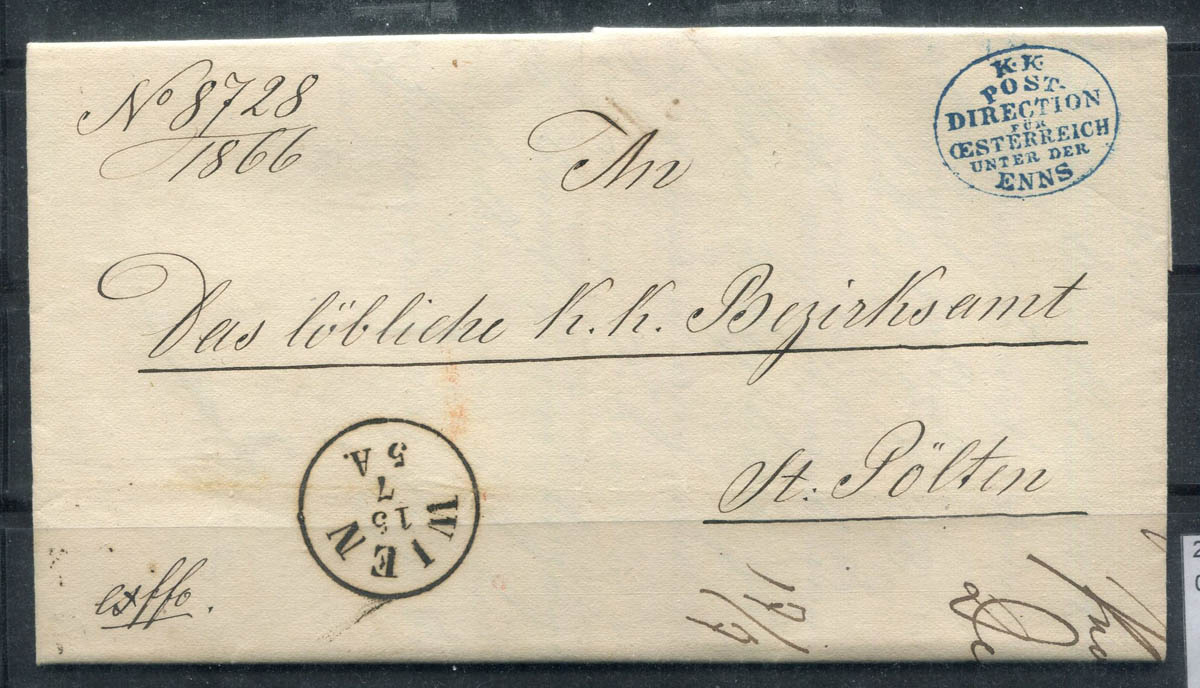 No 8728
1866
K. K.
POST-
DIRECTION
FÜR
ŒSTERREICH
UNTER DER
ENNS
An
Das löbliche K. K. Bezirksamt
St. Pölten
WIEN
15
7
5 A.
exffo.
17/7